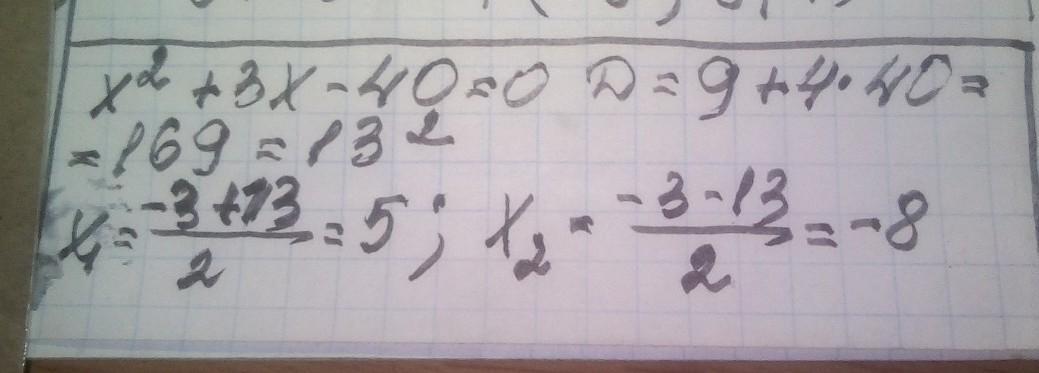 x² + 3x - 40 = 0 D = 9 + 4·40 =
= 169 = 13²
x₁ = (-3+13)/2 = 5; x₂ = (-3-13)/2 = -8